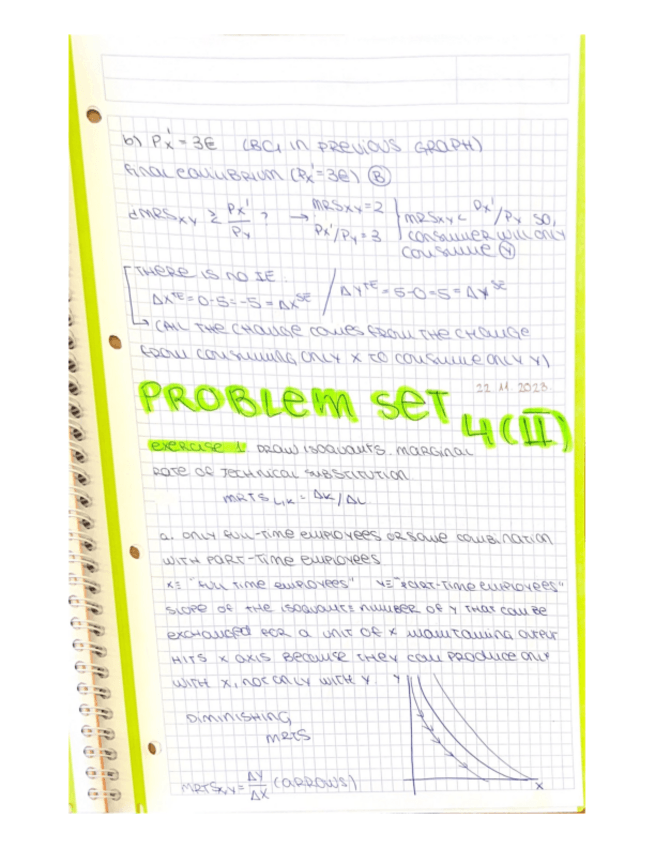 b) Px' = 3€ (BC1 in previous GRAPH)
final equilibrium (Px'=3€) Ⓑ
¿MRSxy ≷ Px'/Py ? → MRSxy=2 Px'/Py = 3 } MRSxy < Px'/Py so,
consumer will only
consume Ⓨ
THERE IS NO IE:
ΔX^TE = 0-5 = -5 = ΔX^SE / ΔY^TE = 5-0 = 5 = ΔY^SE
↳ (ALL THE CHANGE COMES FROM THE CHANGE
FROM CONSUMING ONLY X TO CONSUME ONLY Y)
22 11 2023
PROBLEM SET 4(II)
exercise 1 DRAW ISOQUANTS. MARGINAL
RATE OF TECHNICAL SUBSTITUTION
MRTS L,K = ΔK/ΔL
a. ONLY FULL-TIME EMPLOYEES OR SOME COMBINATION
WITH PART-TIME EMPLOYEES
X= "FULL TIME EMPLOYEES" Y= "PART-TIME EMPLOYEES"
SLOPE OF THE ISOQUANT= NUMBER OF Y THAT CAN BE
EXCHANGED FOR A UNIT OF X MAINTAINING OUTPUT
HITS X AXIS BECAUSE THEY CAN PRODUCE ONLY
WITH X, NOT ONLY WITH Y
Y
DIMINISHING
MRTS
MRTSx,y = ΔY/ΔX (ARROWS)
X